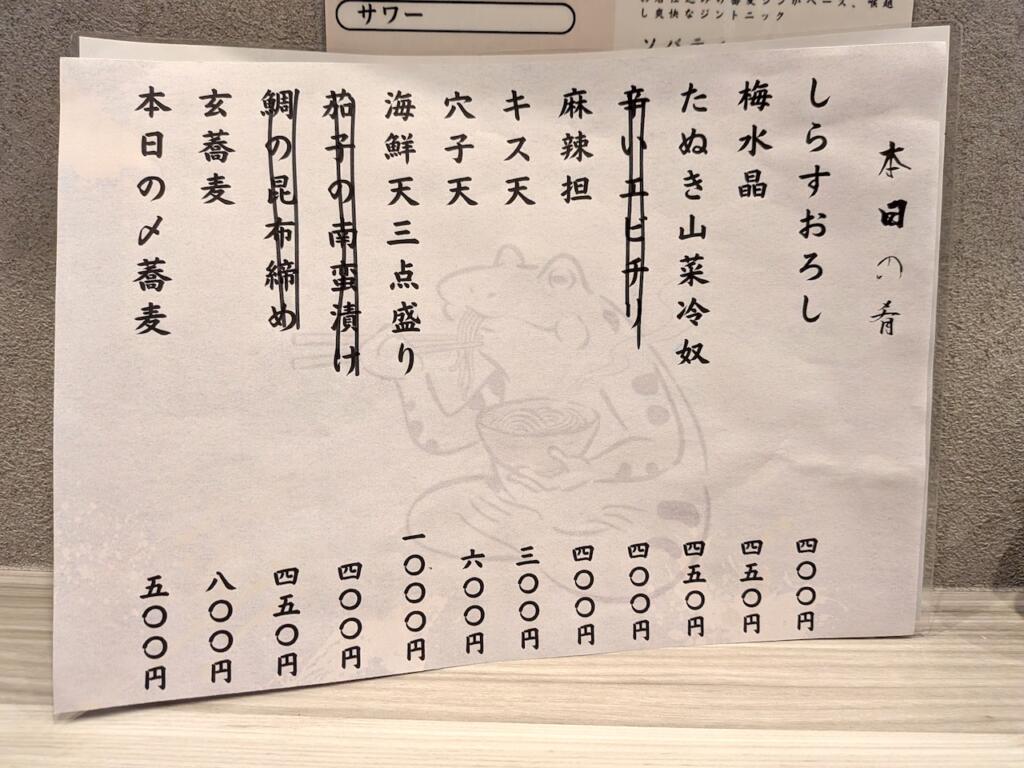 サワー
し爽快なジントニック
本日の肴
しらすおろし 四〇〇円
梅水晶 四五〇円
たぬき山菜冷奴 四五〇円
辛いエビチリ 四〇〇円
麻辣担 四〇〇円
キス天 三〇〇円
穴子天 六〇〇円
海鮮天三点盛り 一〇〇〇円
茄子の南蛮漬け 四〇〇円
鯛の昆布締め 四五〇円
玄蕎麦 八〇〇円
本日の〆蕎麦 五〇〇円